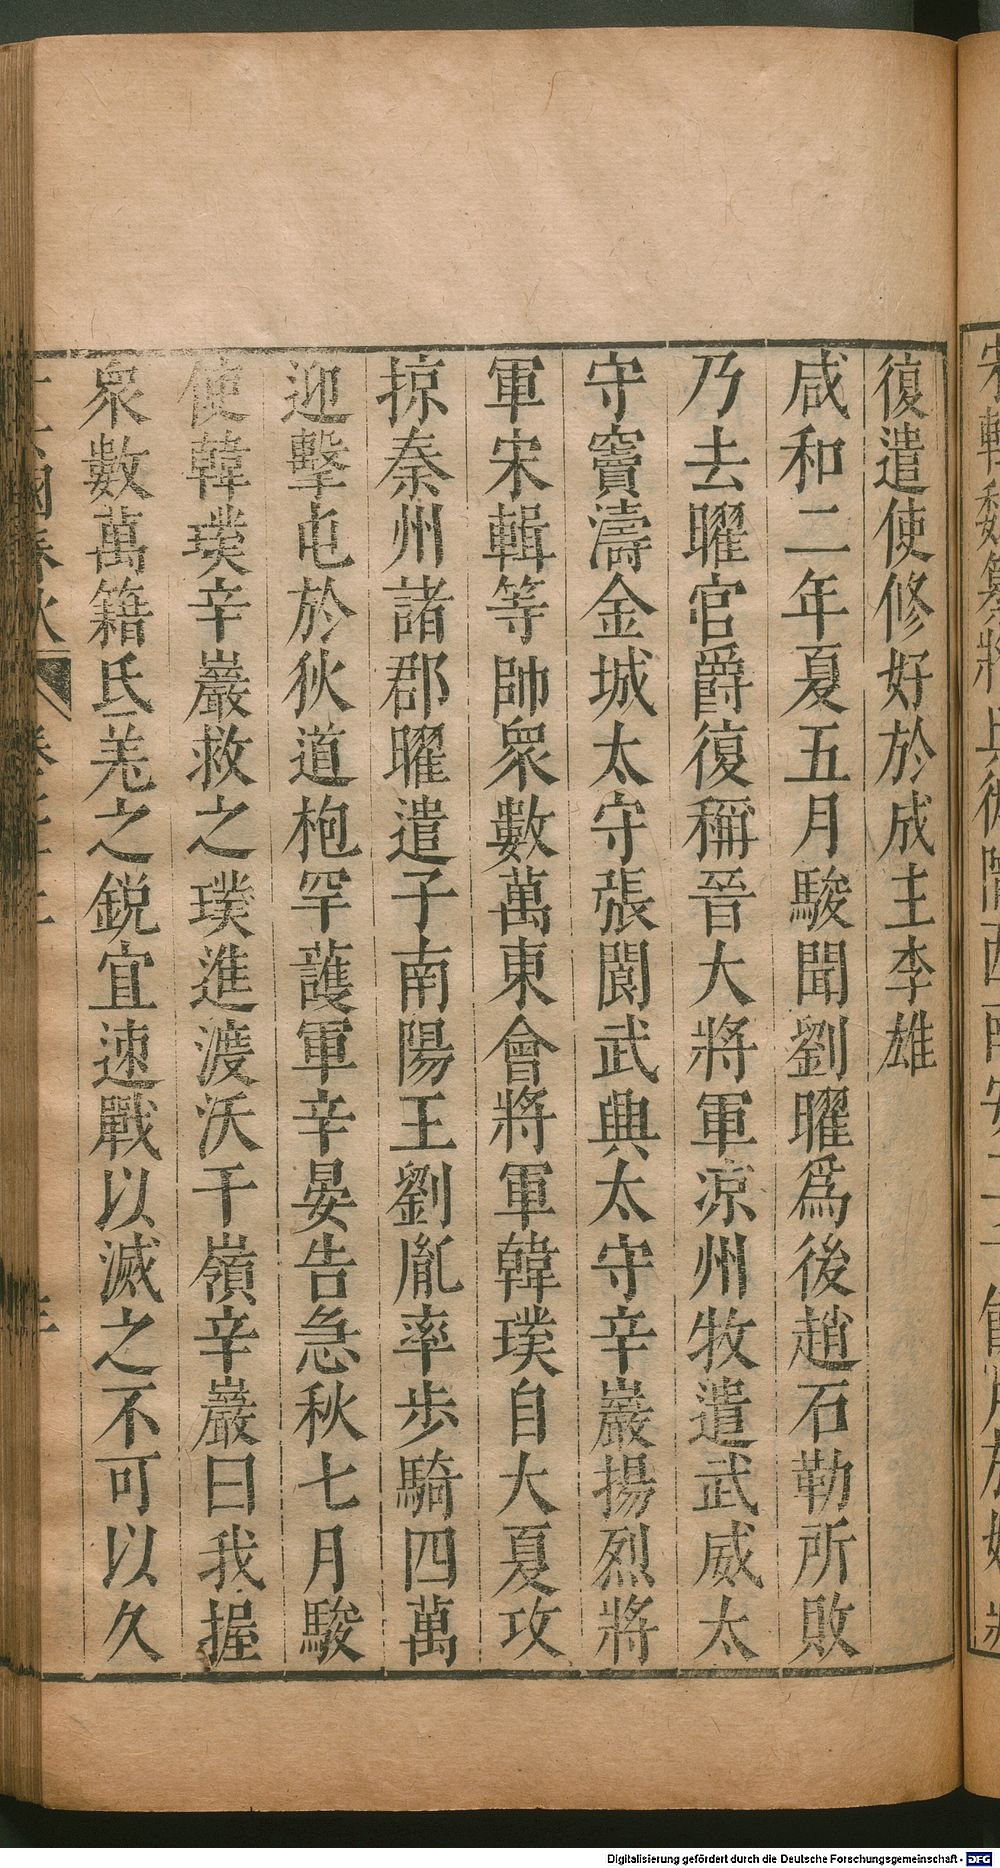 復遣使修好於成主李雄
咸和二年夏五月駿聞劉曜爲後趙石勒所敗
乃去曜官爵復稱晉大將軍涼州牧遣武威太
守竇濤金城太守張閬武興太守辛巖揚烈將
軍宋輯等帥衆數萬東會將軍韓璞自大夏攻
掠秦州諸郡曜遣子南陽王劉胤率步騎四萬
迎擊屯於狄道枹罕護軍辛晏告急秋七月駿
使韓璞辛巖救之璞進渡沃干嶺辛巖曰我握
衆數萬籍氐羌之銳宜速戰以滅之不可以久
國春秋
Digitalisierung gefördert durch die Deutsche Forschungsgemeinschaft - DFG